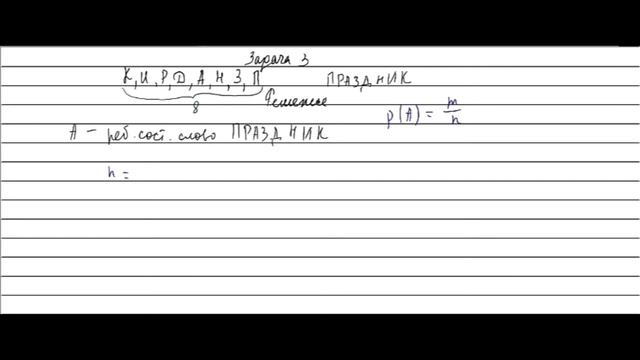 Задача 3
К, И, Р, Д, А, Н, З, П ПРАЗДНИК
8
Решение
p(A) = m/n
A – реб. сост. слово ПРАЗДНИК
n =